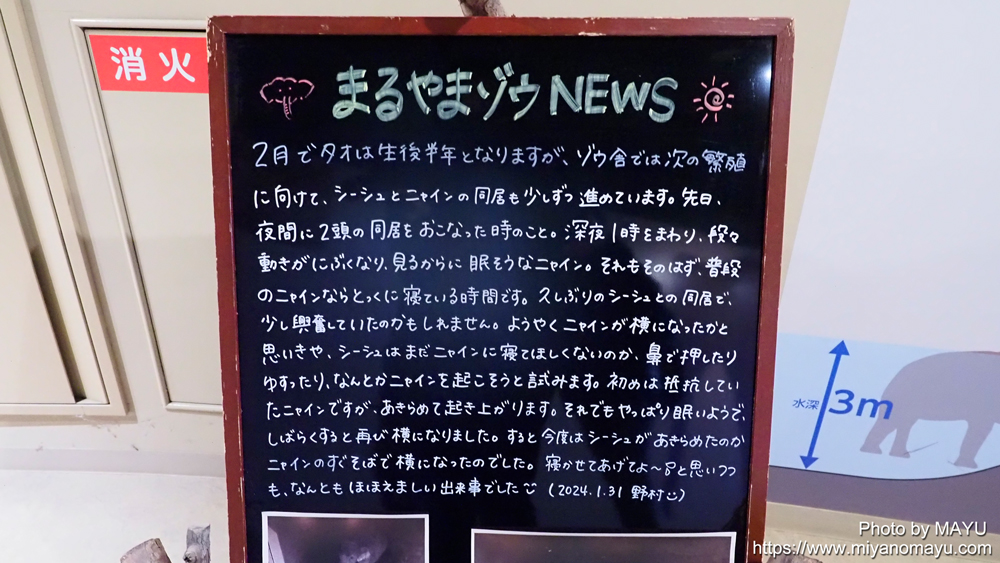 消火
まるやまゾウNEWS
2月でタオは生後半年となりますが、ゾウ舎では次の繁殖
に向けて、シーシュとニャインの同居も少しずつ進めています。先日、
夜間に2頭の同居をおこなった時のこと。深夜1時をまわり、段々
動きがにぶくなり、見るからに眠そうなニャイン。それもそのはず、普段
のニャインならとっくに寝ている時間です。久しぶりのシーシュとの同居で、
少し興奮していたのかもしれません。ようやくニャインが横になったかと
思いきや、シーシュはまだニャインに寝てほしくないのか、鼻で押したり
ゆすったり、なんとかニャインを起こそうと試みます。初めは抵抗してい
たニャインですが、あきらめて起き上がります。それでもやっぱり眠いようで、
しばらくすると再び横になりました。すると今度はシーシュがあきらめたのか
ニャインのすぐそばで横になったのでした。寝かせてあげてよ〜と思いつつ
も、なんともほほえましい出来事でした (2024.1.31 野村)
水深 3m
Photo by MAYU
https://www.miyanomayu.com